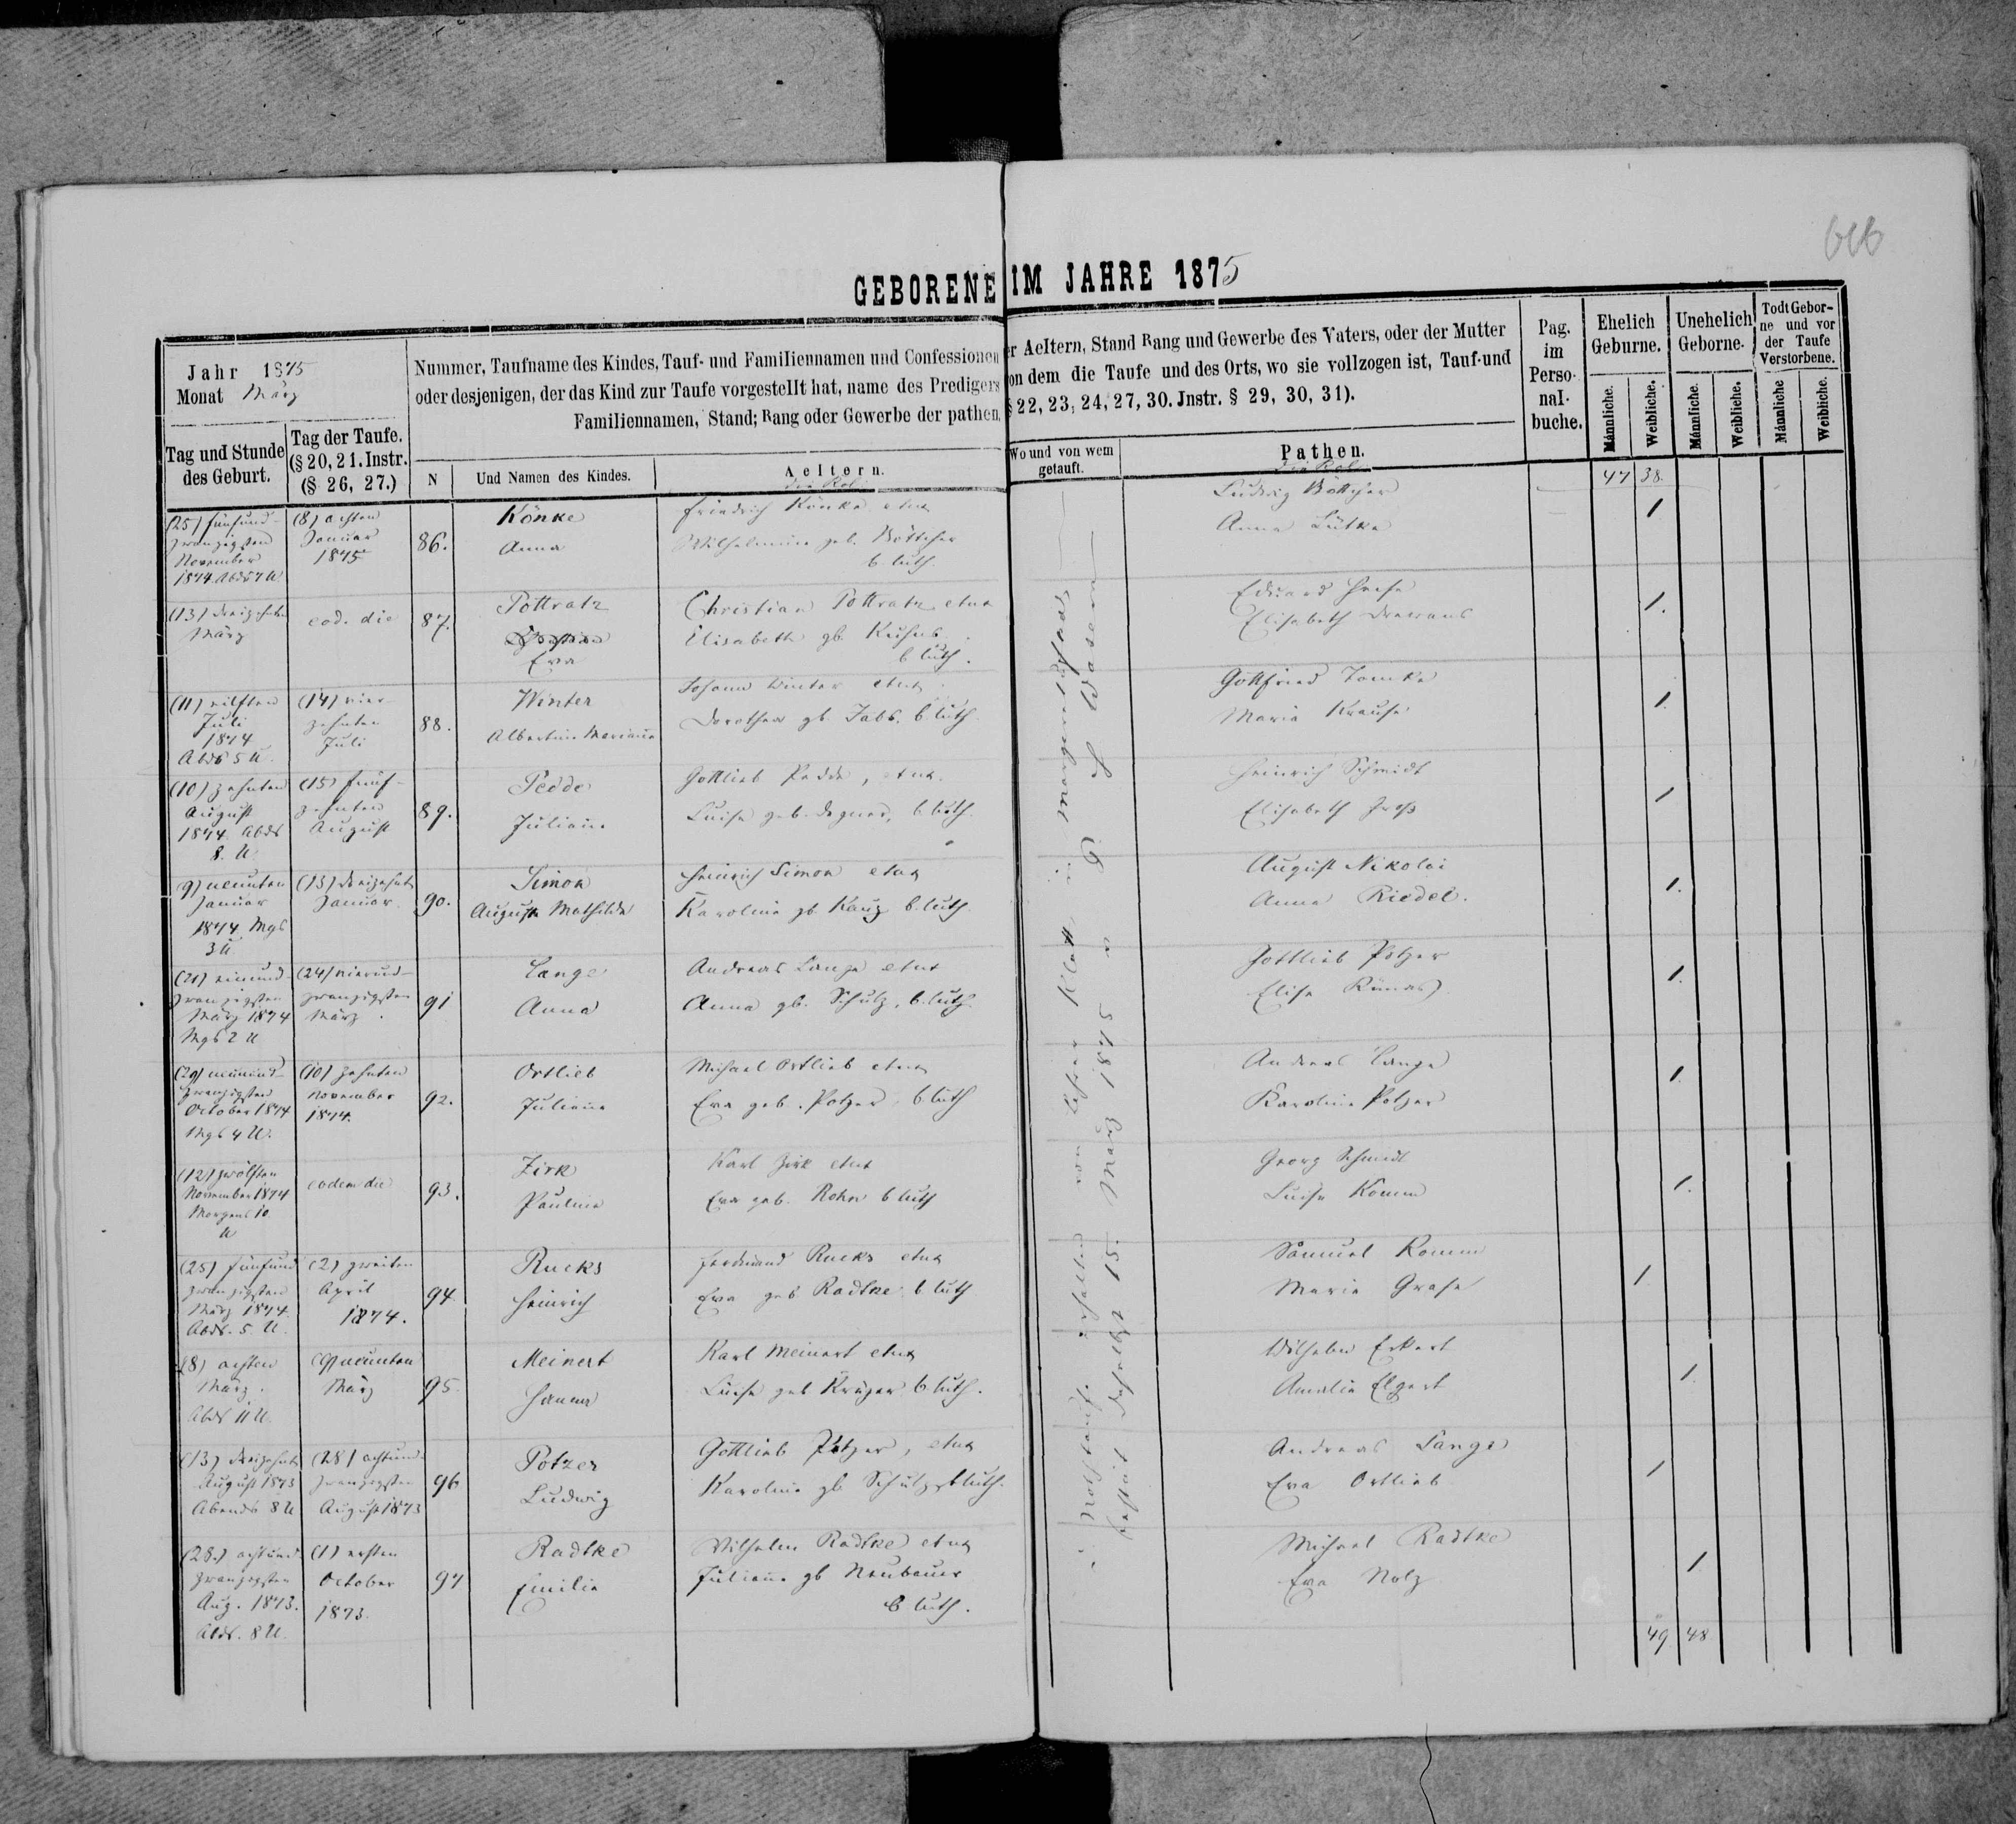 666
GEBORENE IM JAHRE 1875
Jahr 1875
Monat März
Nummer, Taufname des Kindes, Tauf- und Familiennamen und Confessionen
oder desjenigen, der das Kind zur Taufe vorgestellt hat, name des Predigers
Familiennamen, Stand; Rang oder Gewerbe der pathen,
er Aeltern, Stand Rang und Gewerbe des Vaters, oder der Mutter
on dem die Taufe und des Orts, wo sie vollzogen ist, Tauf-und
§ 22, 23, 24, 27, 30. Jnstr. § 29, 30, 31).
Pag. im Perso- nal- buche.
Ehelich Geburne.
Unehelich Geborne.
Todt Gebor- ne und vor der Taufe Verstorbene.
Männliche. Weibliche. Männliche. Weibliche. Männliche Weibliche.
Tag und Stunde des Geburt.
Tag der Taufe. (§ 20, 21. Instr. (§ 26, 27.)
N
Und Namen des Kindes.
Aeltern.
die Kol.
Wo und von wem getauft.
Pathen.
die Kol.
47 38
(25) fünfund-
zwanzigsten
November
1874 Abds 7 U
(8) achten
Januar
1875
86.
Könke
Anna
Friedrich Könke etux
Wilhelmine geb. Böttcher
b. luth.
Ludwig Böttcher
Anna Lütke
1
(13) dreizehnten
März
eod. die
87.
Pottratz
Eva
Christian Pottratz etux
Elisabeth gb.
b luth.
Eduard
Elisabeth
1.
(11) eilften
Juli
1874
Abds 5 U.
(14) vier-
zehnten
Juli
88.
Winter
Albertine Marianne
Johann Winter etux
Dorothea gb. Jabs. b luth.
Gottfried Tomke
Maria Krause
1.
(10) zehnten
August
1874 Abds
8. U.
(15) fünf-
zehnten
August
89.
Pedde
Juliane
Gottlieb Pedde, etux.
Luise geb. Degner, b luth.
Heinrich Schmidt
Elisabeth
1
(9) neunten
Januar
1874 Mgs
3 U
(13) dreizehnt
Januar
90.
Simon
Auguste Mathilde
Heinrich Simon etux
Karoline gb. b. luth.
August Nikolai
Anna Riedel.
1.
(21) einund
zwanzigsten
März 1874
Mgs 2 U
(24) vierund-
zwanzigsten
März.
91
Lange
Anna
Andreas Lange etux
Anna gb. Schulz, b. luth.
Gottlieb Potzer
Elise
1.
(29) neunund-
zwanzigsten
October 1874
Mgs 4 U.
(10) zehnten
November
1874.
92.
Ortlieb
Juliane
Michael Ortlieb etux
Eva geb. Potzer b luth
Andreas Lange
Karoline Potzer
1.
(12) zwölften
November 1874
Morgens 10
U
eodem die
93.
Zirk
Pauline
Karl Zirk etux
Eva geb. Rohn b luth
Georg Schmidt
Luise Komm
1.
(25) fünfund
zwanzigsten
März 1874
Abds. 5. U.
(2) zweiten
April
1874.
94.
Rucks
Heinrich
Ferdinand Rucks etux
Eva geb Radtke b luth
Samuel Komm
Maria
1.
(8) achten
März.
Abds 11 U.
(9) neunten
März
95.
Meinert
Hanna
Karl Meinert etux
Luise geb Krüger b luth.
Wilhelm Eckert
Amalie Elgert
1.
(13) dreizehnt
August 1873
Abends 8 U
(28) achtund-
zwanzigsten
August 1873
96
Potzer
Ludwig
Gottlieb Potzer, etux
Karoline gb Schulz b luth.
Andreas Lange
Eva Ortlieb
1
(28.) achtund
zwanzigsten
Aug. 1873.
Abds. 8 U.
(1) ersten
October
1873.
97
Radtke
Emilie
Wilhelm Radtke etux
Juliane gb Neubauer
b luth.
Michael Radtke
Eva Nolz
1.
Nothtaufe erhalten von Lehrer Klatt in
bestät daselbst 15. März 1875 v P
49 48